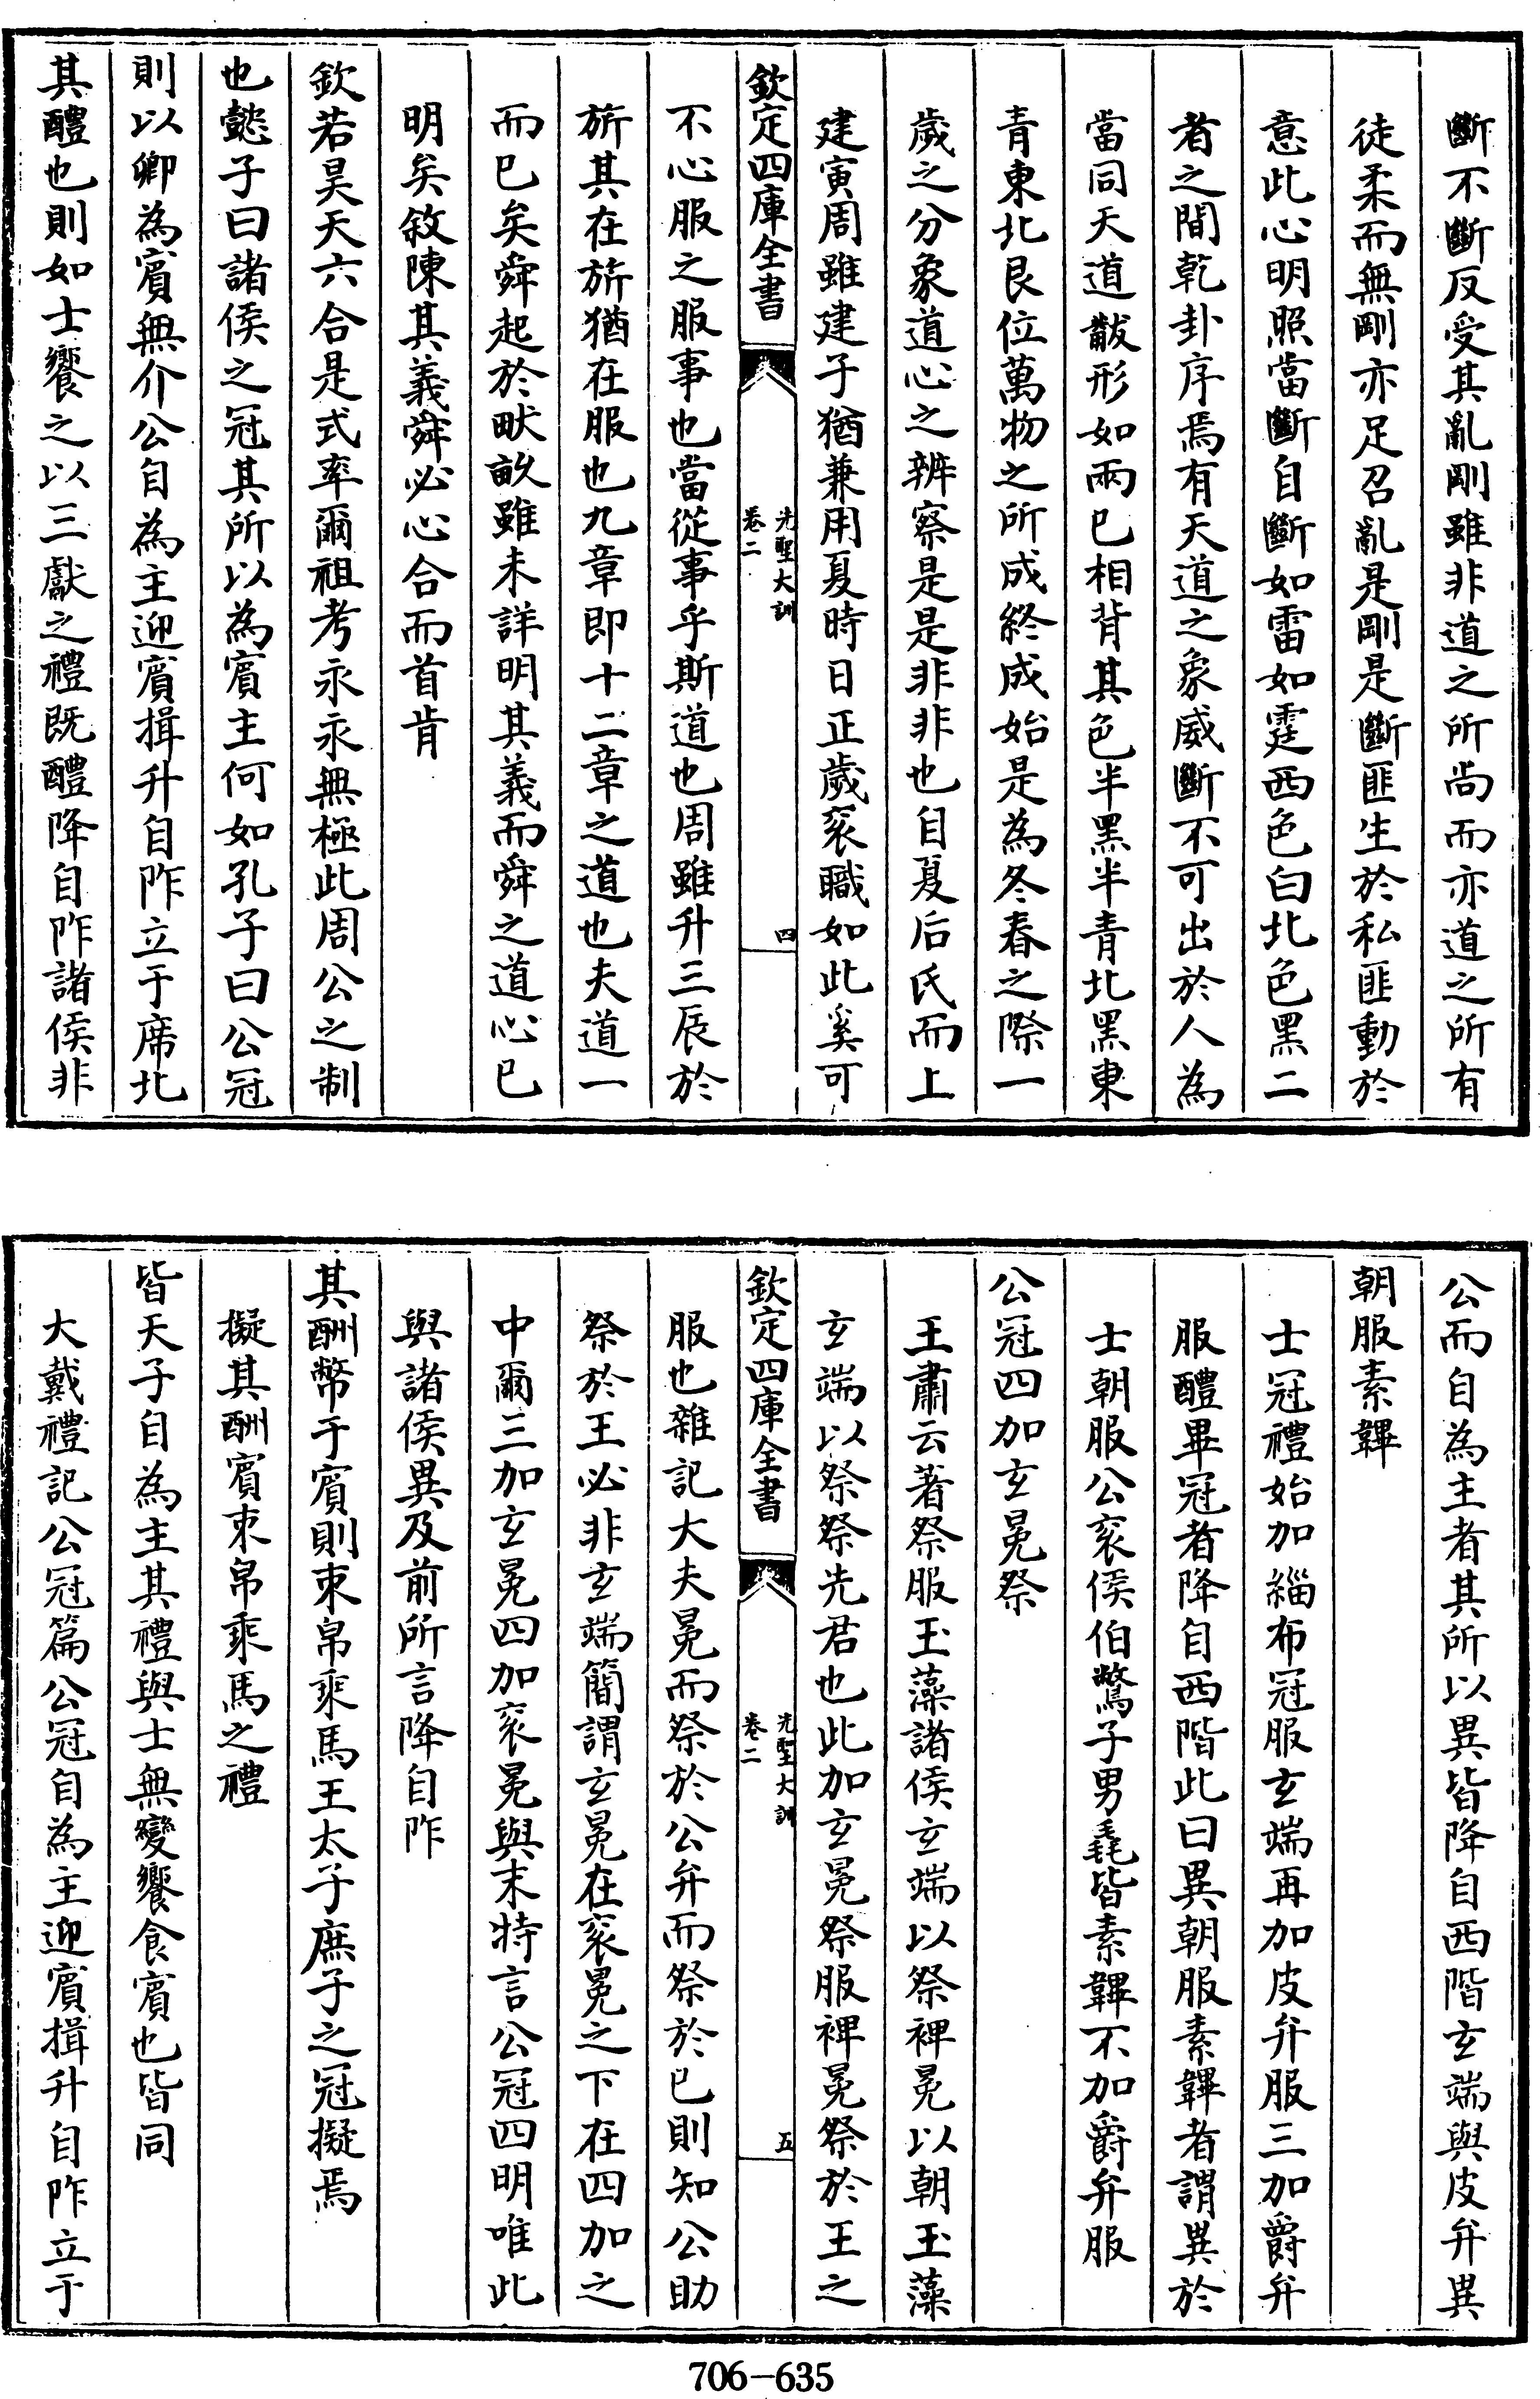 斷不斷反受其亂剛雖非道之所尚而亦道之所有
徒柔而無剛亦足召亂是剛是斷匪生於私匪動於
意此心明照當斷自斷如雷如霆西色白北色黑二
者之間乾卦序焉有天道之象威斷不可出於人為
當同天道黻形如兩已相背其色半黑半青北黑東
青東北艮位萬物之所成終成始是為冬春之際一
歲之分象道心之辨察是是非非也自夏后氏而上
建寅周雖建子猶兼用夏時日正歲衮職如此奚可
欽定四庫全書
先聖大訓
卷二
四
不心服之服事也當從事乎斯道也周雖升三辰於
旂其在旂猶在服也九章即十二章之道也夫道一
而已矣舜起於畎畝雖未詳明其義而舜之道心已
明矣敘陳其義舜必心合而首肯
欽若昊天六合是式率爾祖考永永無極此周公之制
也懿子曰諸侯之冠其所以為賓主何如孔子曰公冠
則以卿為賓無介公自為主迎賓揖升自阼立于席北
其醴也則如士饗之以三獻之禮既醴降自阼諸侯非
公而自為主者其所以異皆降自西階玄端與皮弁異
朝服素韠
士冠禮始加緇布冠服玄端再加皮弁服三加爵弁
服醴畢冠者降自西階此曰異朝服素韠者謂異於
士朝服公衮侯伯鷩子男毳皆素韠不加爵弁服
公冠四加玄冕祭
王肅云著祭服玉藻諸侯玄端以祭裨冕以朝玉藻
玄端以祭祭先君也此加玄冕祭服裨冕祭於王之
欽定四庫全書
先聖大訓
卷二
五
服也雜記大夫冕而祭於公弁而祭於已則知公助
祭於王必非玄端簡謂玄冕在衮冕之下在四加之
中爾三加玄冕四加衮冕與末特言公冠四明唯此
與諸侯異及前所言降自阼
其酬幣于賓則束帛乘馬王太子庶子之冠擬焉
擬其酬賓束帛乘馬之禮
皆天子自為主其禮與士無變饗食賓也皆同
大戴禮記公冠篇公冠自為主迎賓揖升自阼立于
706-635